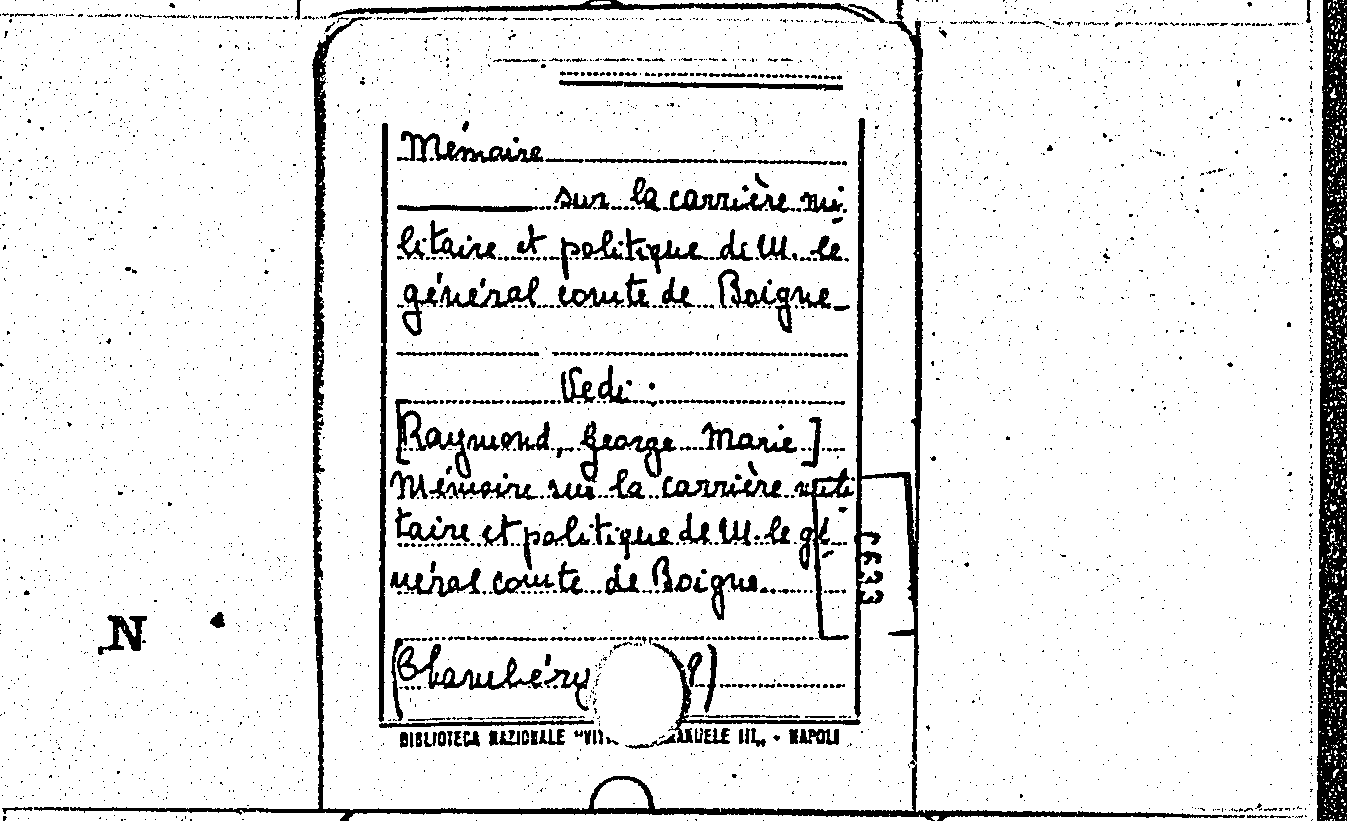 Mémoire
sur la carrière mi
litaire et politique de M. le
général comte de Boigne
Vedi:
[Raymond, George Marie]
Mémoire sur la carrière mili
taire et politique de M. le gé
néral comte de Boigne
(Chambéry ?)
BIBLIOTECA NAZIONALE "VITT MANUELE III„ - NAPOLI
N